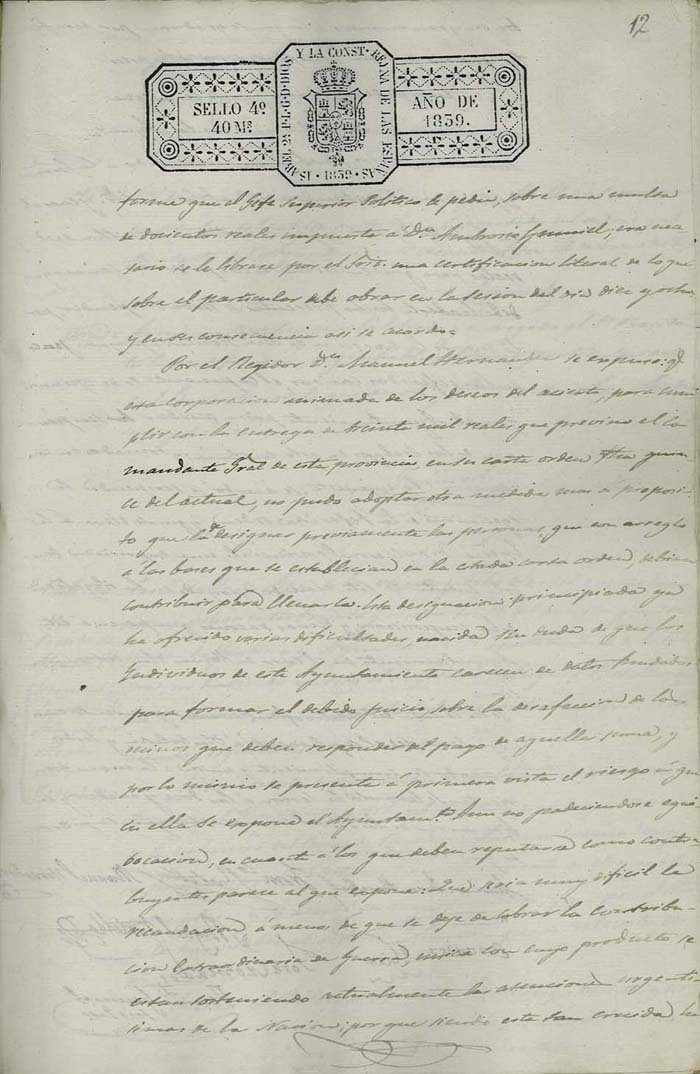 12
ISABEL 2ª P.L.G.D.DIOS Y LA CONST. REYNA DE LAS ESPAÑAS
SELLO 4º
40 Ms
AÑO DE
1839.
1839
forme que el Gefe Superior Politico le pedia, sobre una multa
de docientos reales impuesta á Dn Ambrosio Gumiel; era nece
sario se le librase por el Srio. una certificacion literal de lo que
sobre el particular debe obrar en la sesion del dia diez y ocho
y en su consecuencia asi se acordo=
Por el Regidor Dn Manuel Hernandez se expuso: qe
esta Corporacion animada de los deseos del acierto, para cum
plir con la entrega de treinta mil reales que previno el Co
mandante Gral de esta provincia, en su carta orden fha quin
ce del actual, no pudo adoptar otra medida mas á proposi
to que la de designar previamente las personas, que con arreglo
á las bases que se establecian en la citada carta orden, debian
contribuir para llenarla. Esta designacion principiada ya
ha ofrecido varias dificultades, nacida sin duda de que los
Individuos de este Ayuntamiento carecen de datos fundados
para formar el debido juicio, sobre la desafeccion de los
vecinos que deben responder del pago de aquella suma, y
por lo mismo se presenta á primera vista el riesgo á que
en ella se expone el Ayuntamto. Aun no padeciendose equi
bocacion, en cuanto á los que deben reputarse como contri
buyentes parece al que expone: Que seria muy dificil la
recaudacion, á menos de que se deje de cobrar la contribu-
cion Extraordinaria de Guerra, unica con cuyo producto se
estan sosteniendo actualmente las atenciones urgenti
simas de la Nacion; por que siendo esta tan crecida